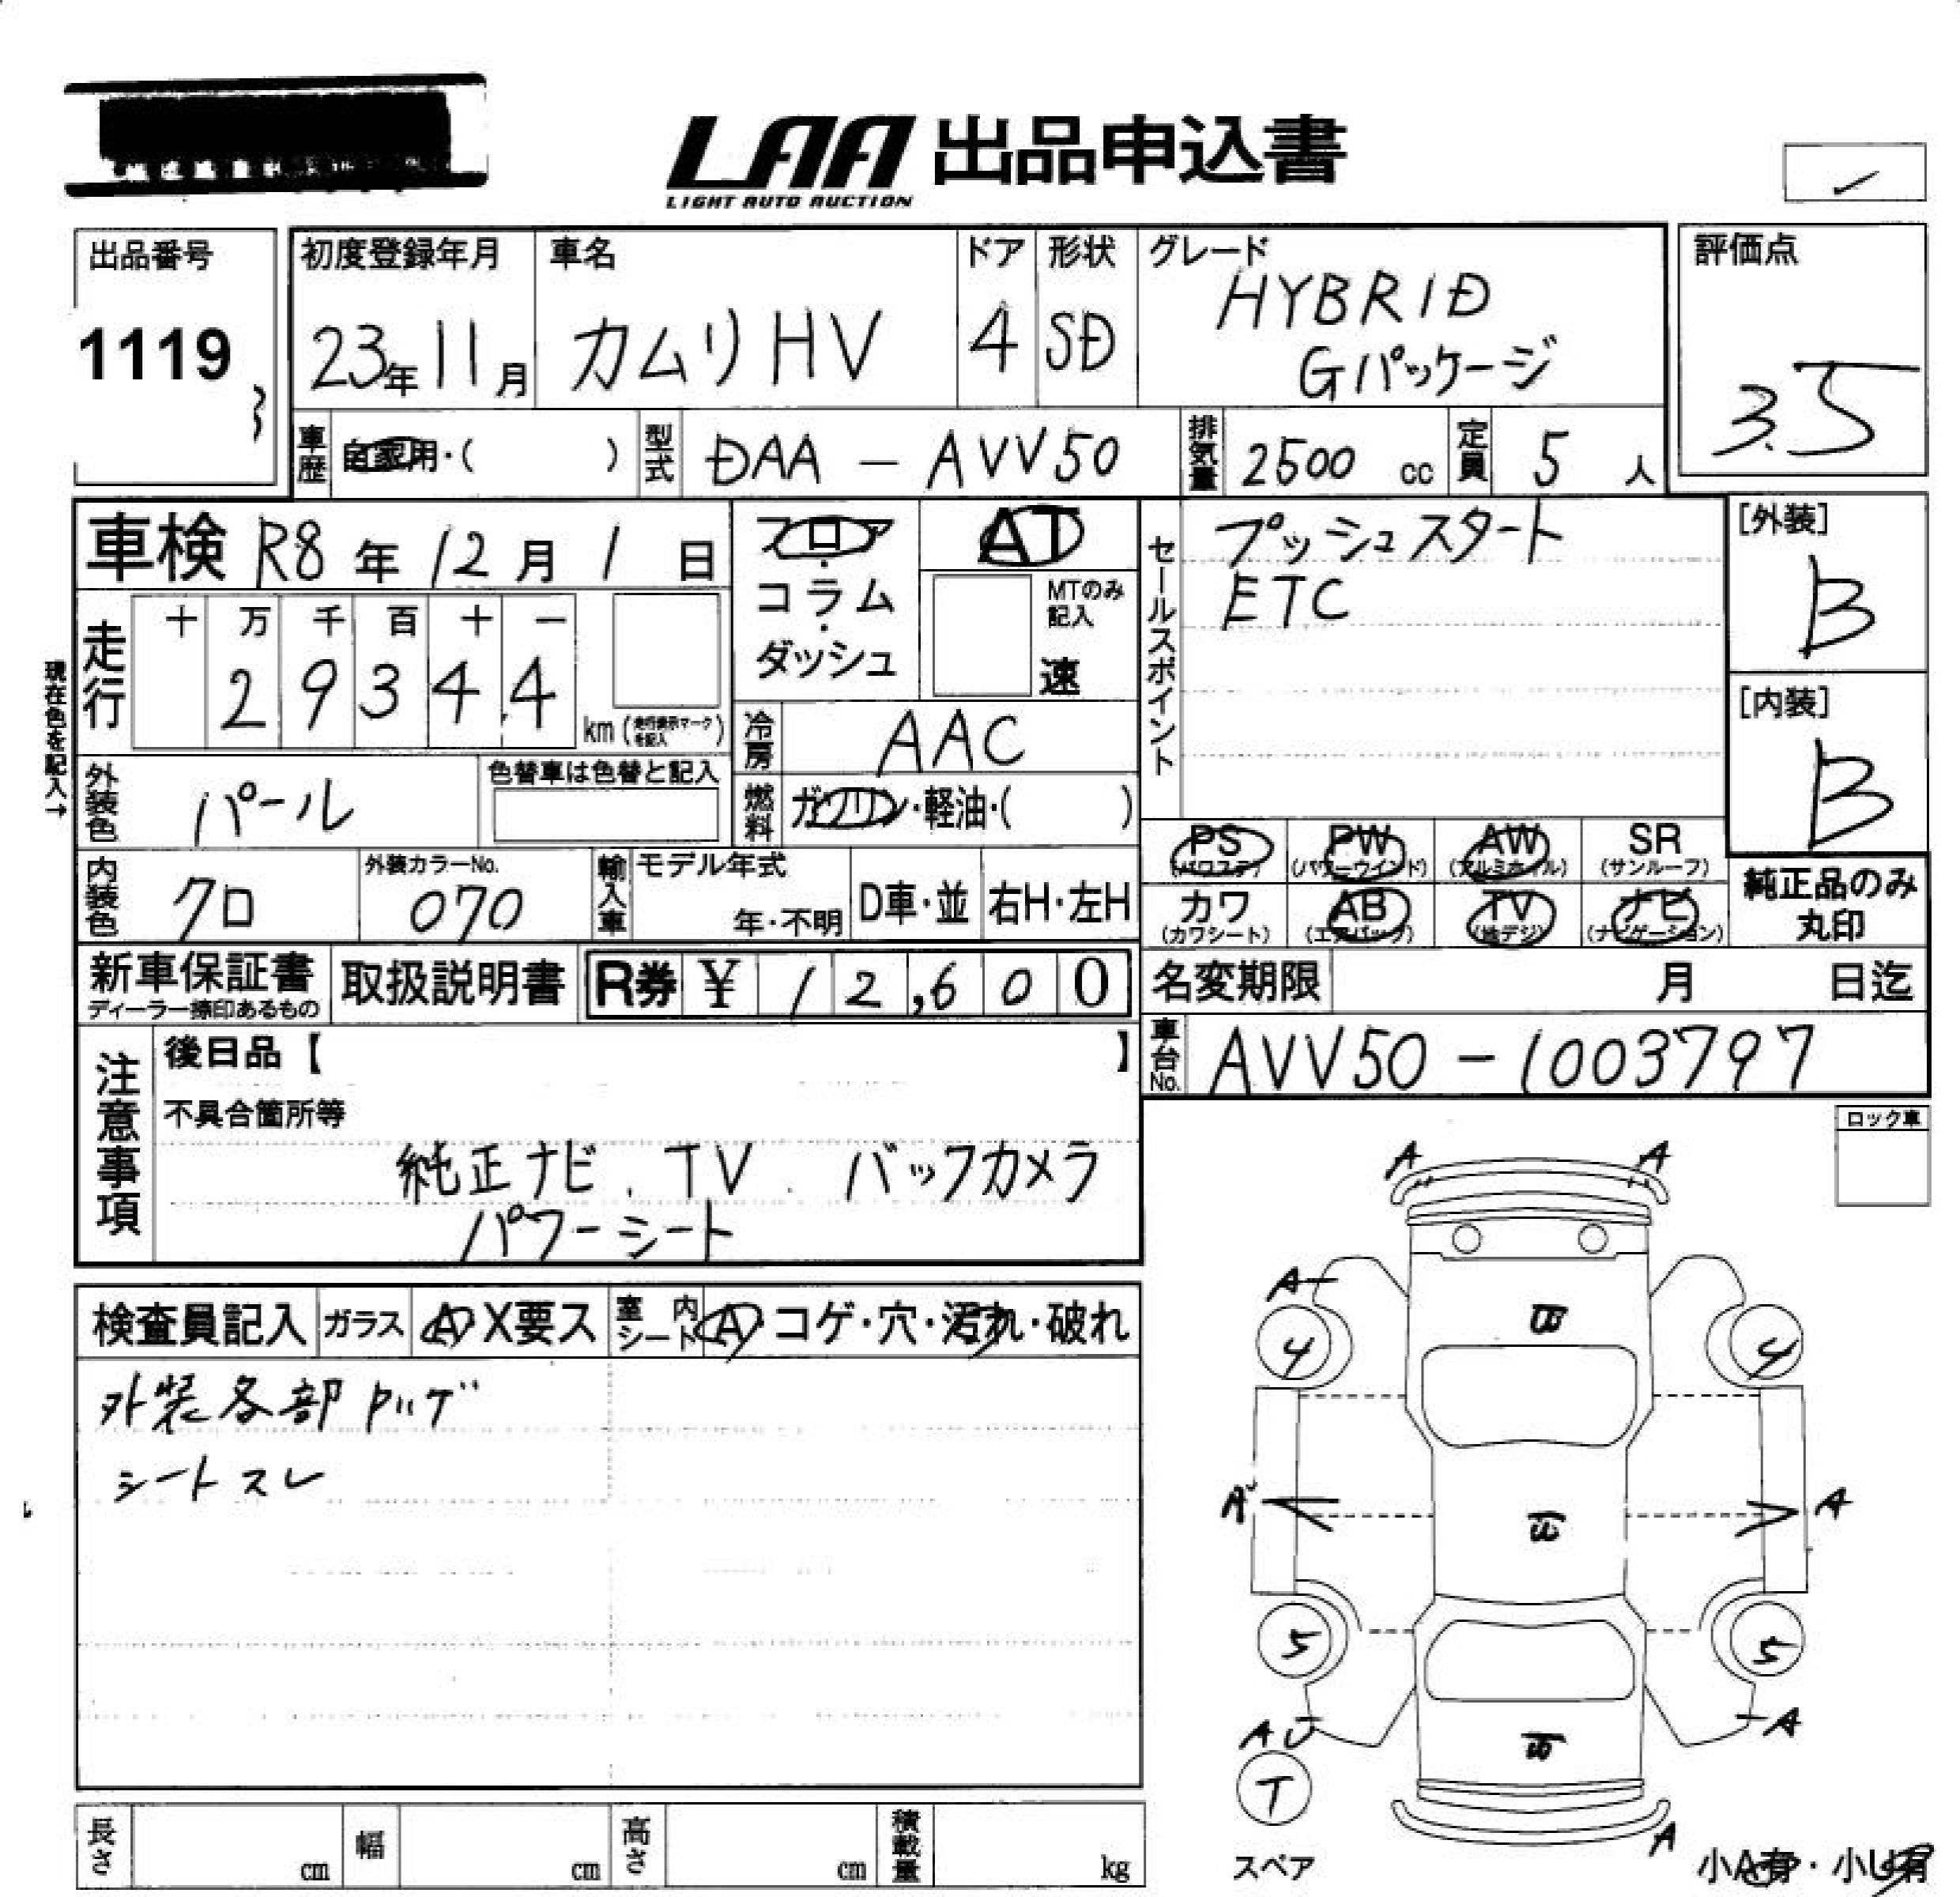 LAA 出品申込書
LIGHT AUTO AUCTION
出品番号
1119
初度登録年月
23年11月
車名
カムリHV
ドア
4
形状
SD
グレード
HYBRID
Gパッケージ
評価点
3.5
車歴
自家用・( )
型式
DAA-AVV50
排気量
2500 cc
定員
5 人
車検 R8年12月1日
フロア・コラム・ダッシュ
AT
MTのみ記入
速
セールスポイント
プッシュスタート
ETC
[外装]
B
[内装]
B
現在色を記入→
走行
十 万 千 百 十 一
2 9 3 4 4
km (走行表示マークを記入)
冷房
AAC
外装色
パール
色替車は色替と記入
燃料
ガソリン・軽油・( )
PS (パワステ)
PW (パワーウインド)
AW (アルミホイル)
SR (サンルーフ)
カワ (カワシート)
AB (エアバック)
TV (地デジ)
ナビ (ナビゲーション)
純正品のみ
丸印
内装色
クロ
外装カラーNo.
070
輸入車
モデル年式
年・不明
D車・並
右H・左H
新車保証書
ディーラー捺印あるもの
取扱説明書
R券 ¥ 12,600
名変期限 月 日迄
車台No.
AVV50-1003797
注意事項
後日品【 】
不具合箇所等
純正ナビ. TV. バックカメラ
パワーシート
ロック車
検査員記入
ガラス
A X要ス
室内シート
A・コゲ・穴・汚れ・破れ
外装各部
シートスレ
A A
A
4 4
A A
5 5
A U A
T
スペア
A
小A有・小U有
長さ cm
幅 cm
高さ cm
積載量 kg